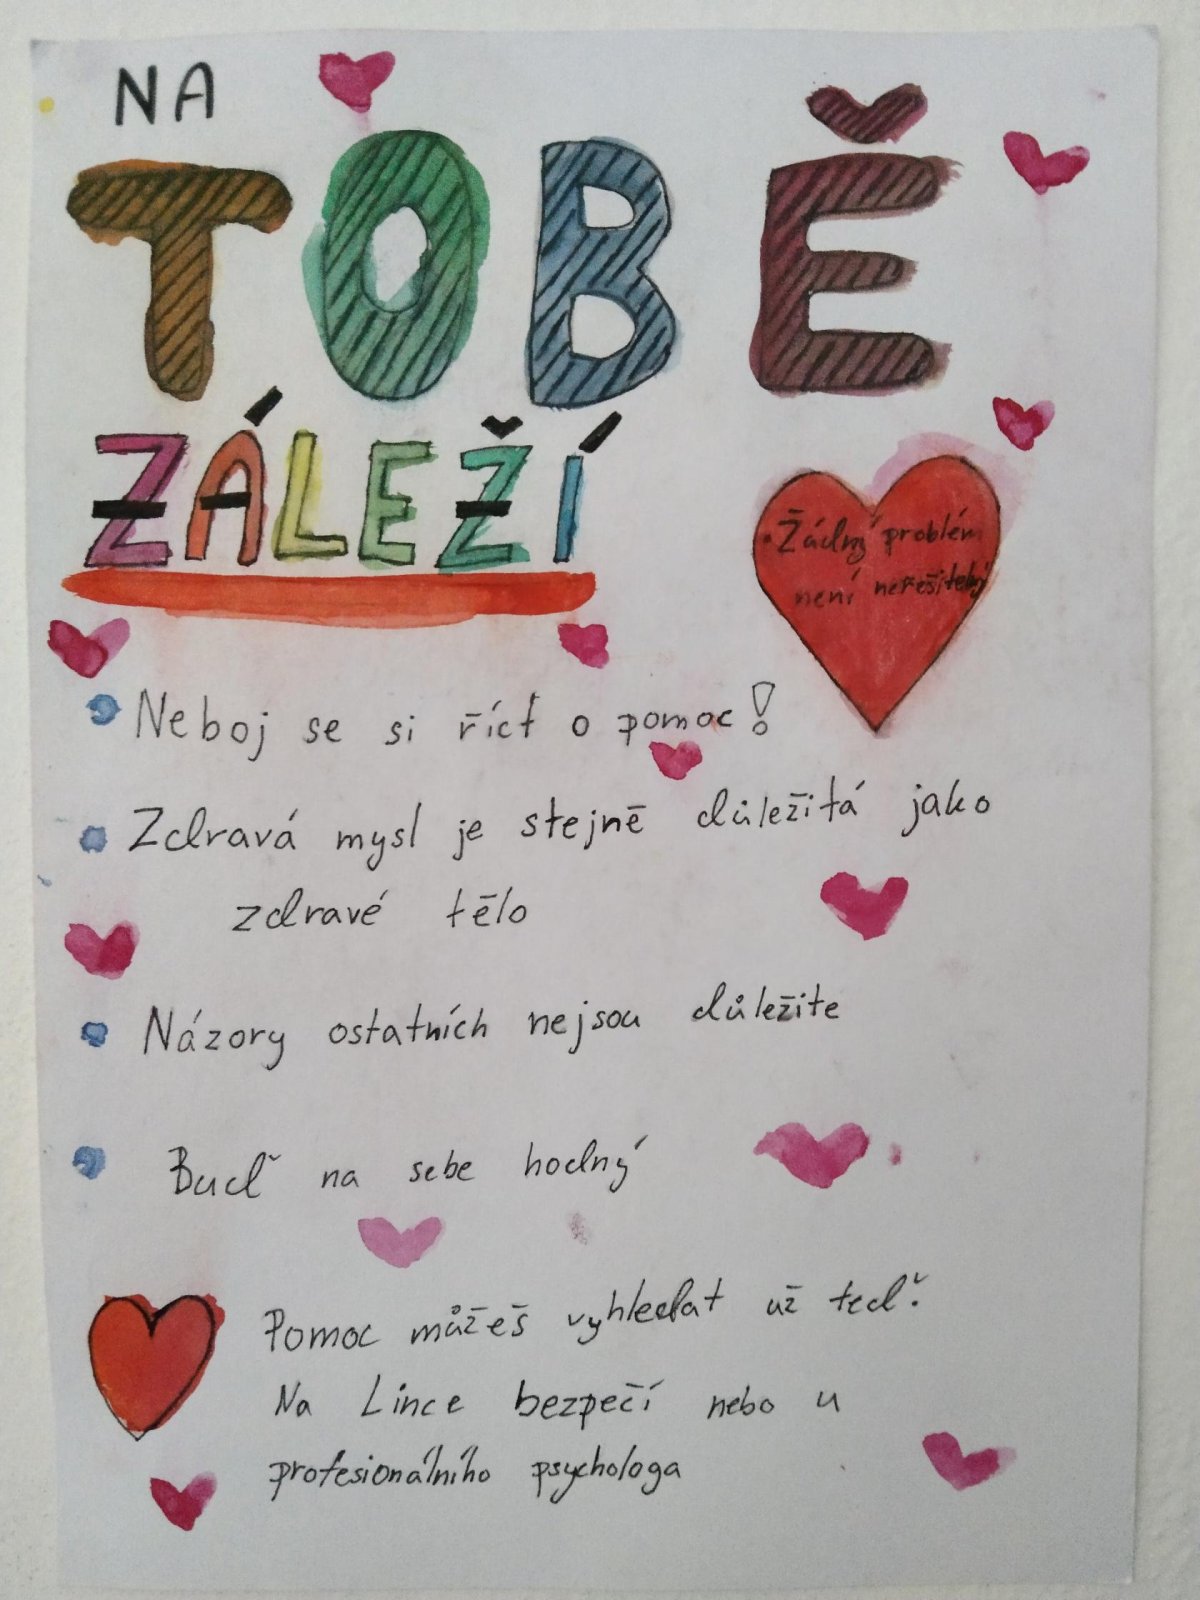 NA
TOBĚ
ZÁLEŽÍ
• Žádný problém
není neřešitelný
• Neboj se si říct o pomoc!
• Zdravá mysl je stejně důležitá jako
zdravé tělo
• Názory ostatních nejsou důležite
• Buď na sebe hodný
Pomoc můžeš vyhledat už teď:
Na Lince bezpečí nebo u
profesionálního psychologa